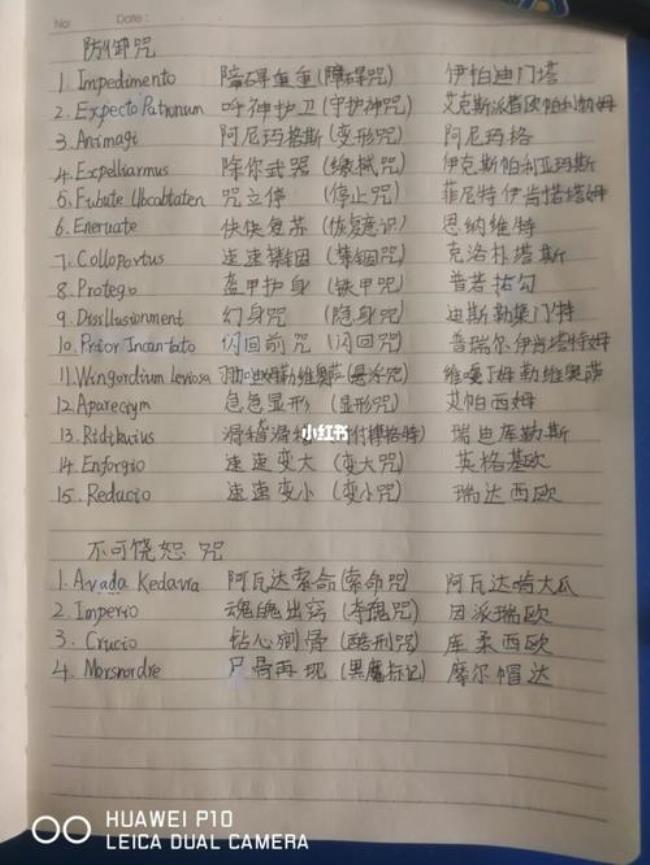 No: Date:
防御咒
1. Impedimento 障碍重重(障碍咒) 伊帕迪门塔
2. Expecto Patronum 呼神护卫(守护神咒) 艾克斯派普欧帕利勒姆
3. Animagi 阿尼玛格斯(变形咒) 阿尼玛格
4. Expelliarmus 除你武器(缴械咒) 伊克斯帕利亚玛斯
5. 咒立停 (停止咒) 菲尼特伊肯塔塔姆
6. Eneruate 快快复苏(恢复意识) 恩纳维特
7. Colloportus 速速禁锢(禁锢咒) 克洛朴塔斯
8. Protego 盔甲护身(铁甲咒) 普若拓勾
9. Disillusionment 幻身咒 (隐身咒) 迪斯勒集门特
10. Prior Incan-tato 闪回前咒(闪回咒) 普瑞尔伊肯塔特姆
11. Wingordium leviosa 勒维奥萨(悬浮咒) 维嘎丁姆勒维奥萨
12. Aparecium 急急显形 (显形咒) 艾帕西姆
13. Ridikuius 滑稽滑稽 付博格特) 瑞迪库勒斯
小红书
14. Enforgio 速速变大 (变大咒) 英格基欧
15. Reducio 速速变小 (变小咒) 瑞达西欧
不可饶恕咒
1. Avada Kedavra 阿瓦达索命(索命咒) 阿瓦达啃大瓜
2. Imperio 魂魄出窍(夺魂咒) 因派瑞欧
3. Crucio 钻心剜骨(酷刑咒) 库柔西欧
4. Morsmordre 尸骨再现(黑魔标记) 摩尔帽达
HUAWEI P10
LEICA DUAL CAMERA